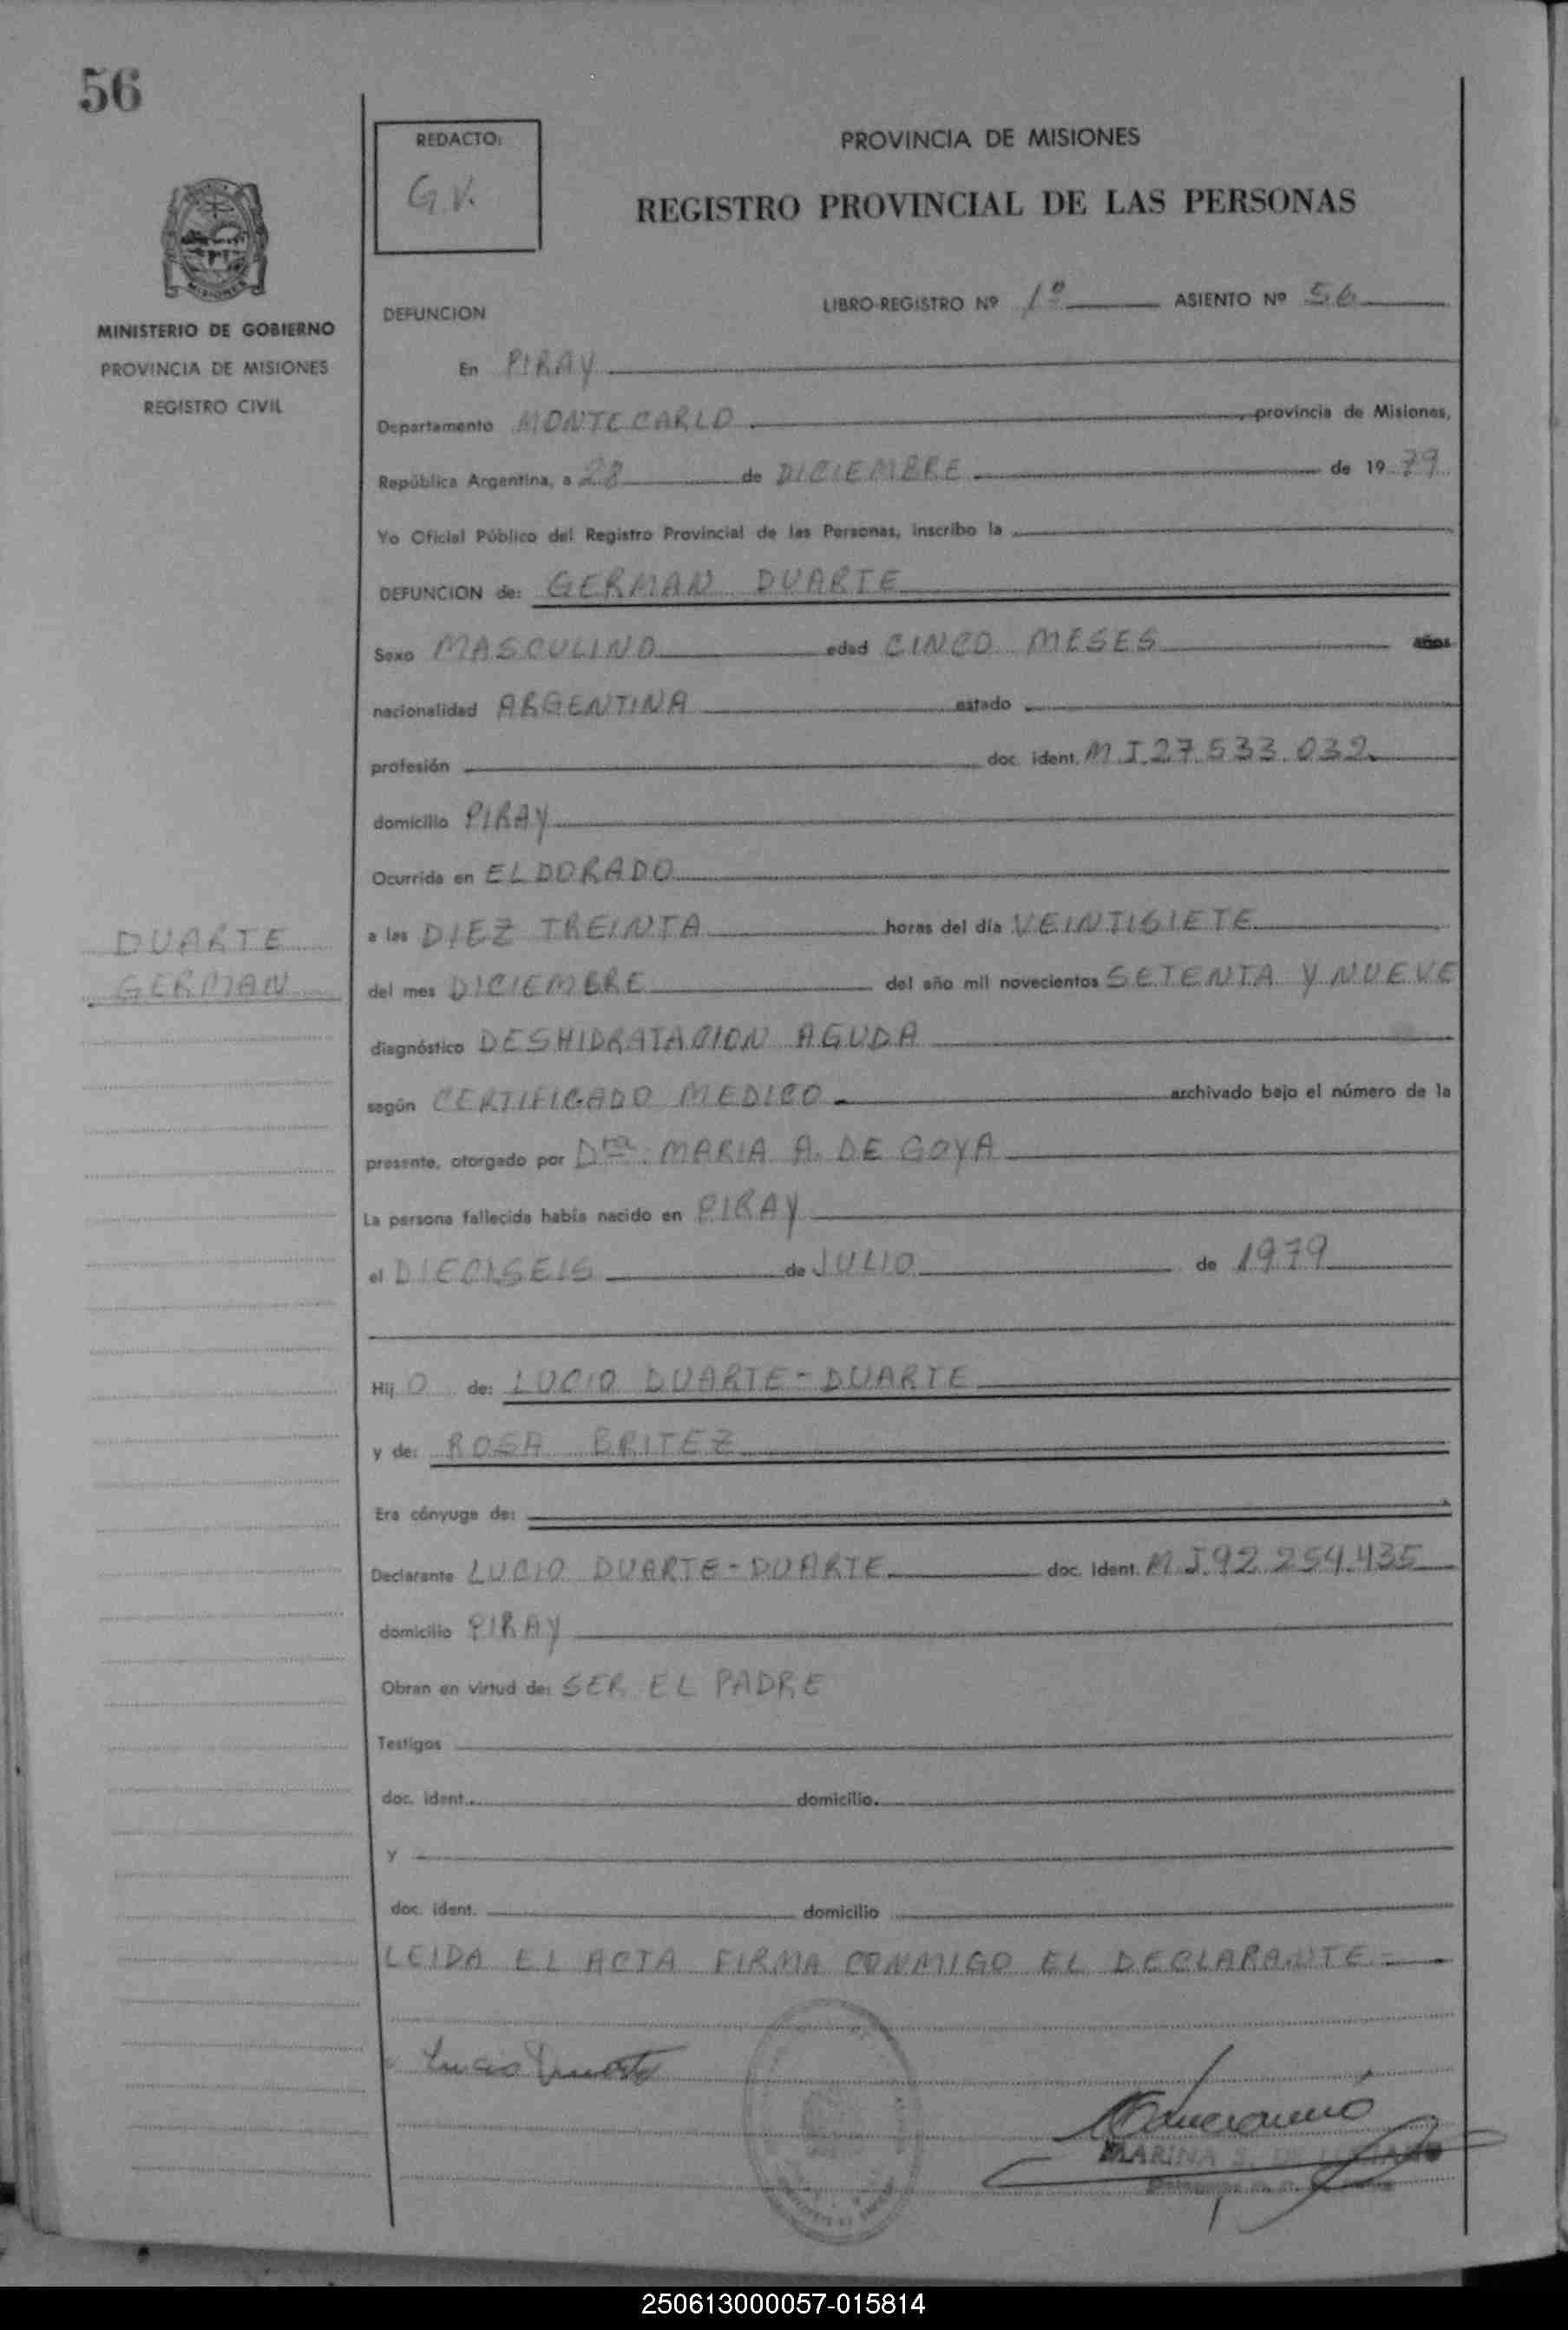 56
REDACTO:
G.V.
PROVINCIA DE MISIONES
REGISTRO PROVINCIAL DE LAS PERSONAS
MISIONES
MINISTERIO DE GOBIERNO
PROVINCIA DE MISIONES
REGISTRO CIVIL
DEFUNCION
LIBRO-REGISTRO Nº 1º ASIENTO Nº 56
En PIRAY
Departamento MONTECARLO, provincia de Misiones,
República Argentina, a 28 de DICIEMBRE de 1979
Yo Oficial Público del Registro Provincial de las Personas, inscribo la
DEFUNCION de: GERMAN DUARTE
Sexo MASCULINO edad CINCO MESES años
nacionalidad ARGENTINA estado
profesión doc. ident. M.I.27.533.032
domicilio PIRAY
Ocurrida en ELDORADO
DUARTE
GERMAN
a las DIEZ TREINTA horas del día VEINTISIETE
del mes DICIEMBRE del año mil novecientos SETENTA Y NUEVE
diagnóstico DESHIDRATACION AGUDA
según CERTIFICADO MEDICO archivado bajo el número de la
presente, otorgado por Dra. MARIA A. DE GOYA
La persona fallecida había nacido en PIRAY
el DIECISEIS de JULIO de 1979
Hij O de: LUCIO DUARTE-DUARTE
y de: ROSA BRITEZ
Era cónyuge de:
Declarante LUCIO DUARTE-DUARTE doc. ident. M.I.92.254.435
domicilio PIRAY
Obran en virtud de: SER EL PADRE
Testigos
doc. ident. domicilio.
y
doc. ident. domicilio
LEIDA EL ACTA FIRMA CONMIGO EL DECLARANTE.=
Lucio Duarte
MARINA S. DE
250613000057-015814